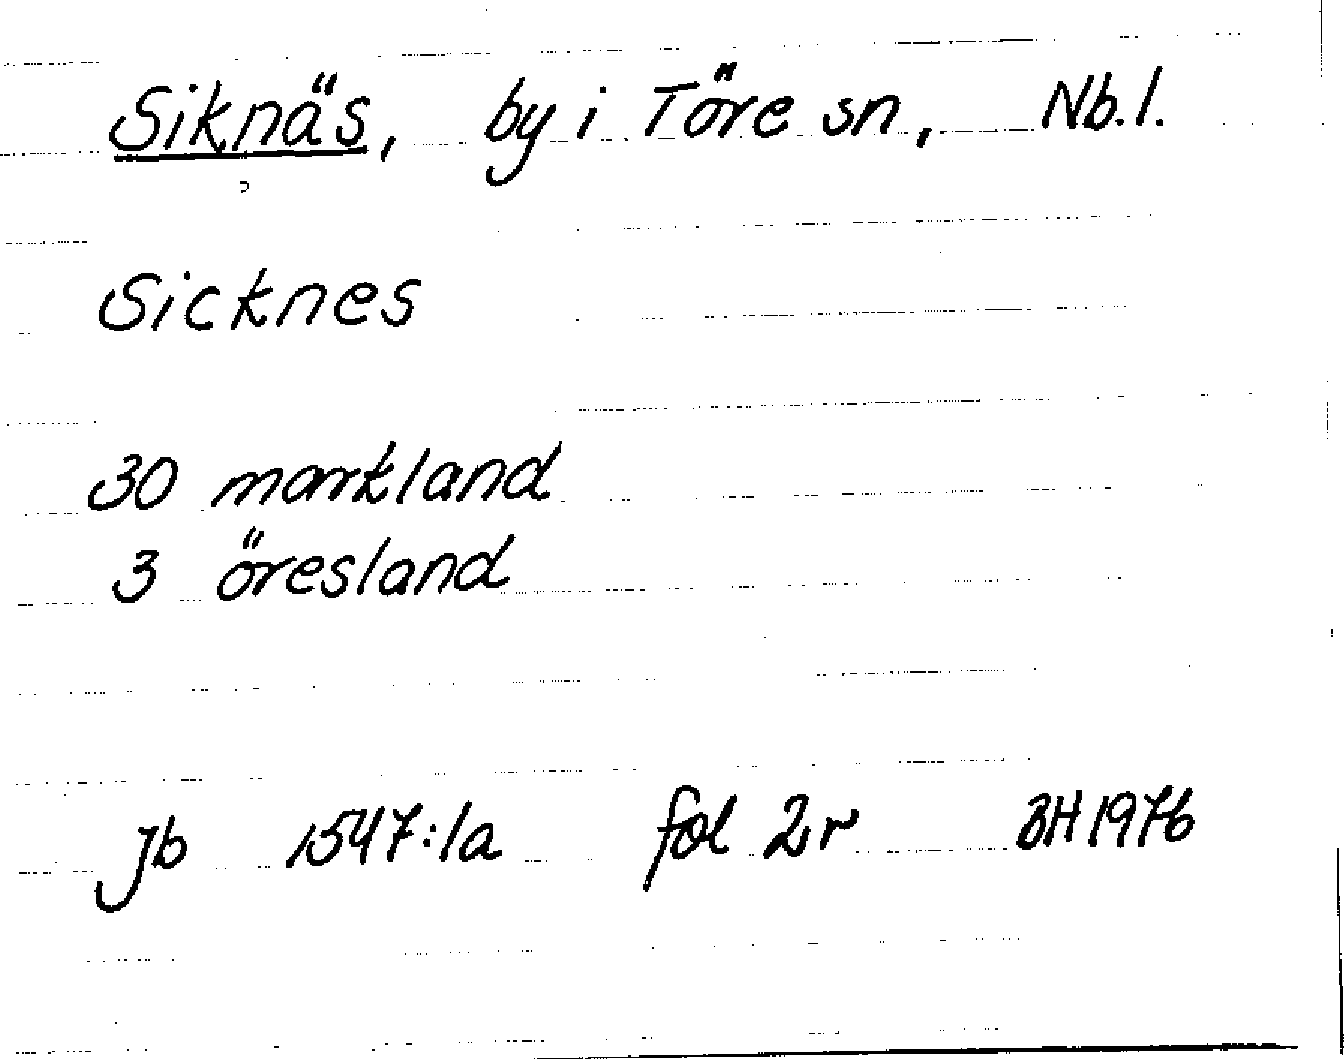 Siknäs, by i Töre sn, Nb.l.
Sicknes
30 markland
3 öresland
Jb 1547:1a fol 2r BH 1976